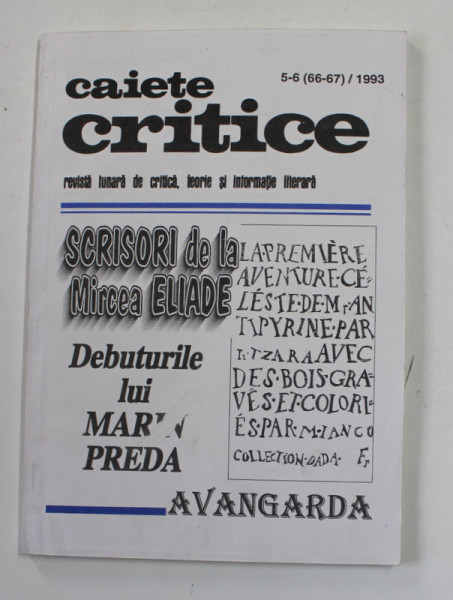 caiete
5-6 (66-67) / 1993
critice
revistă lunară de critică, teorie și informație literară
SCRISORI de la
Mircea ELIADE
Debuturile
lui
MARIN
PREDA
LA·PREMIÈRE
AVENTURE·CÉ=
LÉSTE·DE·Mr·AN
TIPYRINE·PAR
T·TZARA AVEC
DES·BOIS·GRA=
VÉS·ET·COLORI=
ÉS·PAR·M·IANCO
COLLECTION·DADA·
AVANGARDA